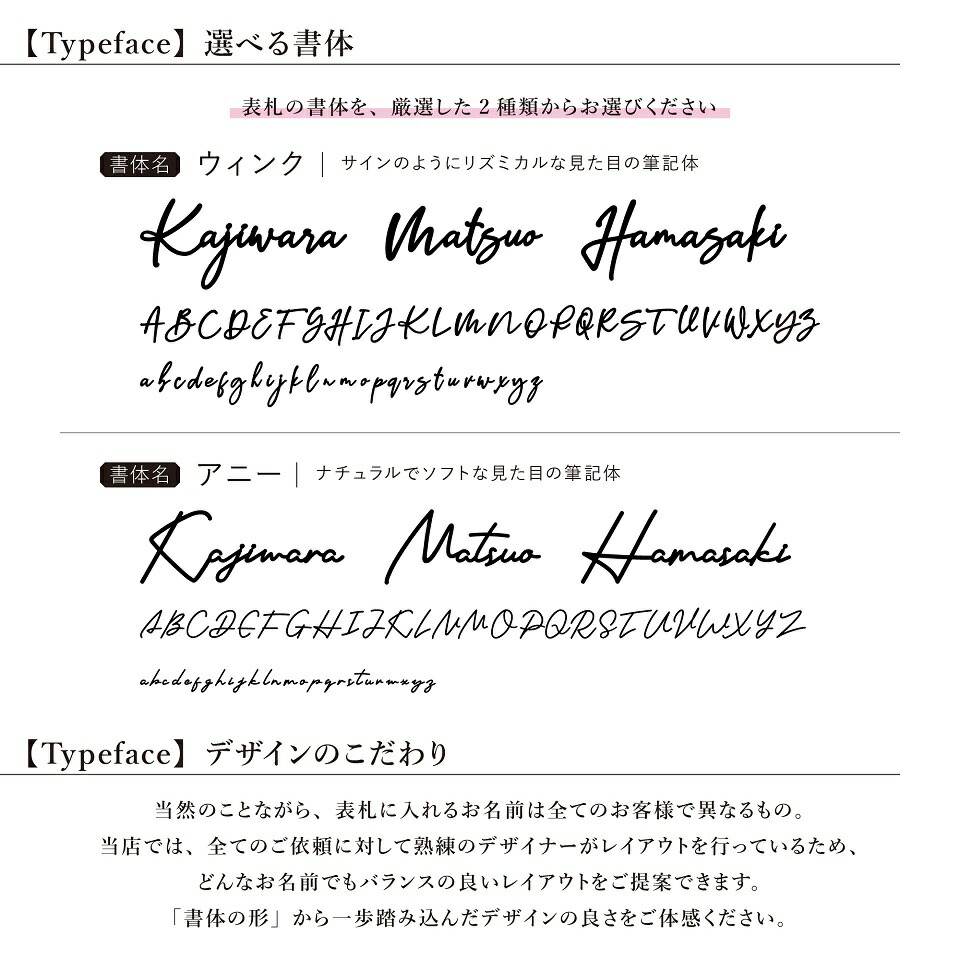 【Typeface】選べる書体
表札の書体を、厳選した2種類からお選びください
書体名 ウィンク｜サインのようにリズミカルな見た目の筆記体
Kajiwara Matsuo Hamasaki
ABCDEFGHIJKLMNOPQRSTUVWXYZ
abcdefghijklnmopqrstuvwxyz
書体名 アニー｜ナチュラルでソフトな見た目の筆記体
Kajiwara Matsuo Hamasaki
ABCDEFGHIJKLNMOPQRSTUVWXYZ
abcdefghijklnmopqrstuvwxyz
【Typeface】デザインのこだわり
当然のことながら、表札に入れるお名前は全てのお客様で異なるもの。
当店では、全てのご依頼に対して熟練のデザイナーがレイアウトを行っているため、
どんなお名前でもバランスの良いレイアウトをご提案できます。
「書体の形」から一歩踏み込んだデザインの良さをご体感ください。